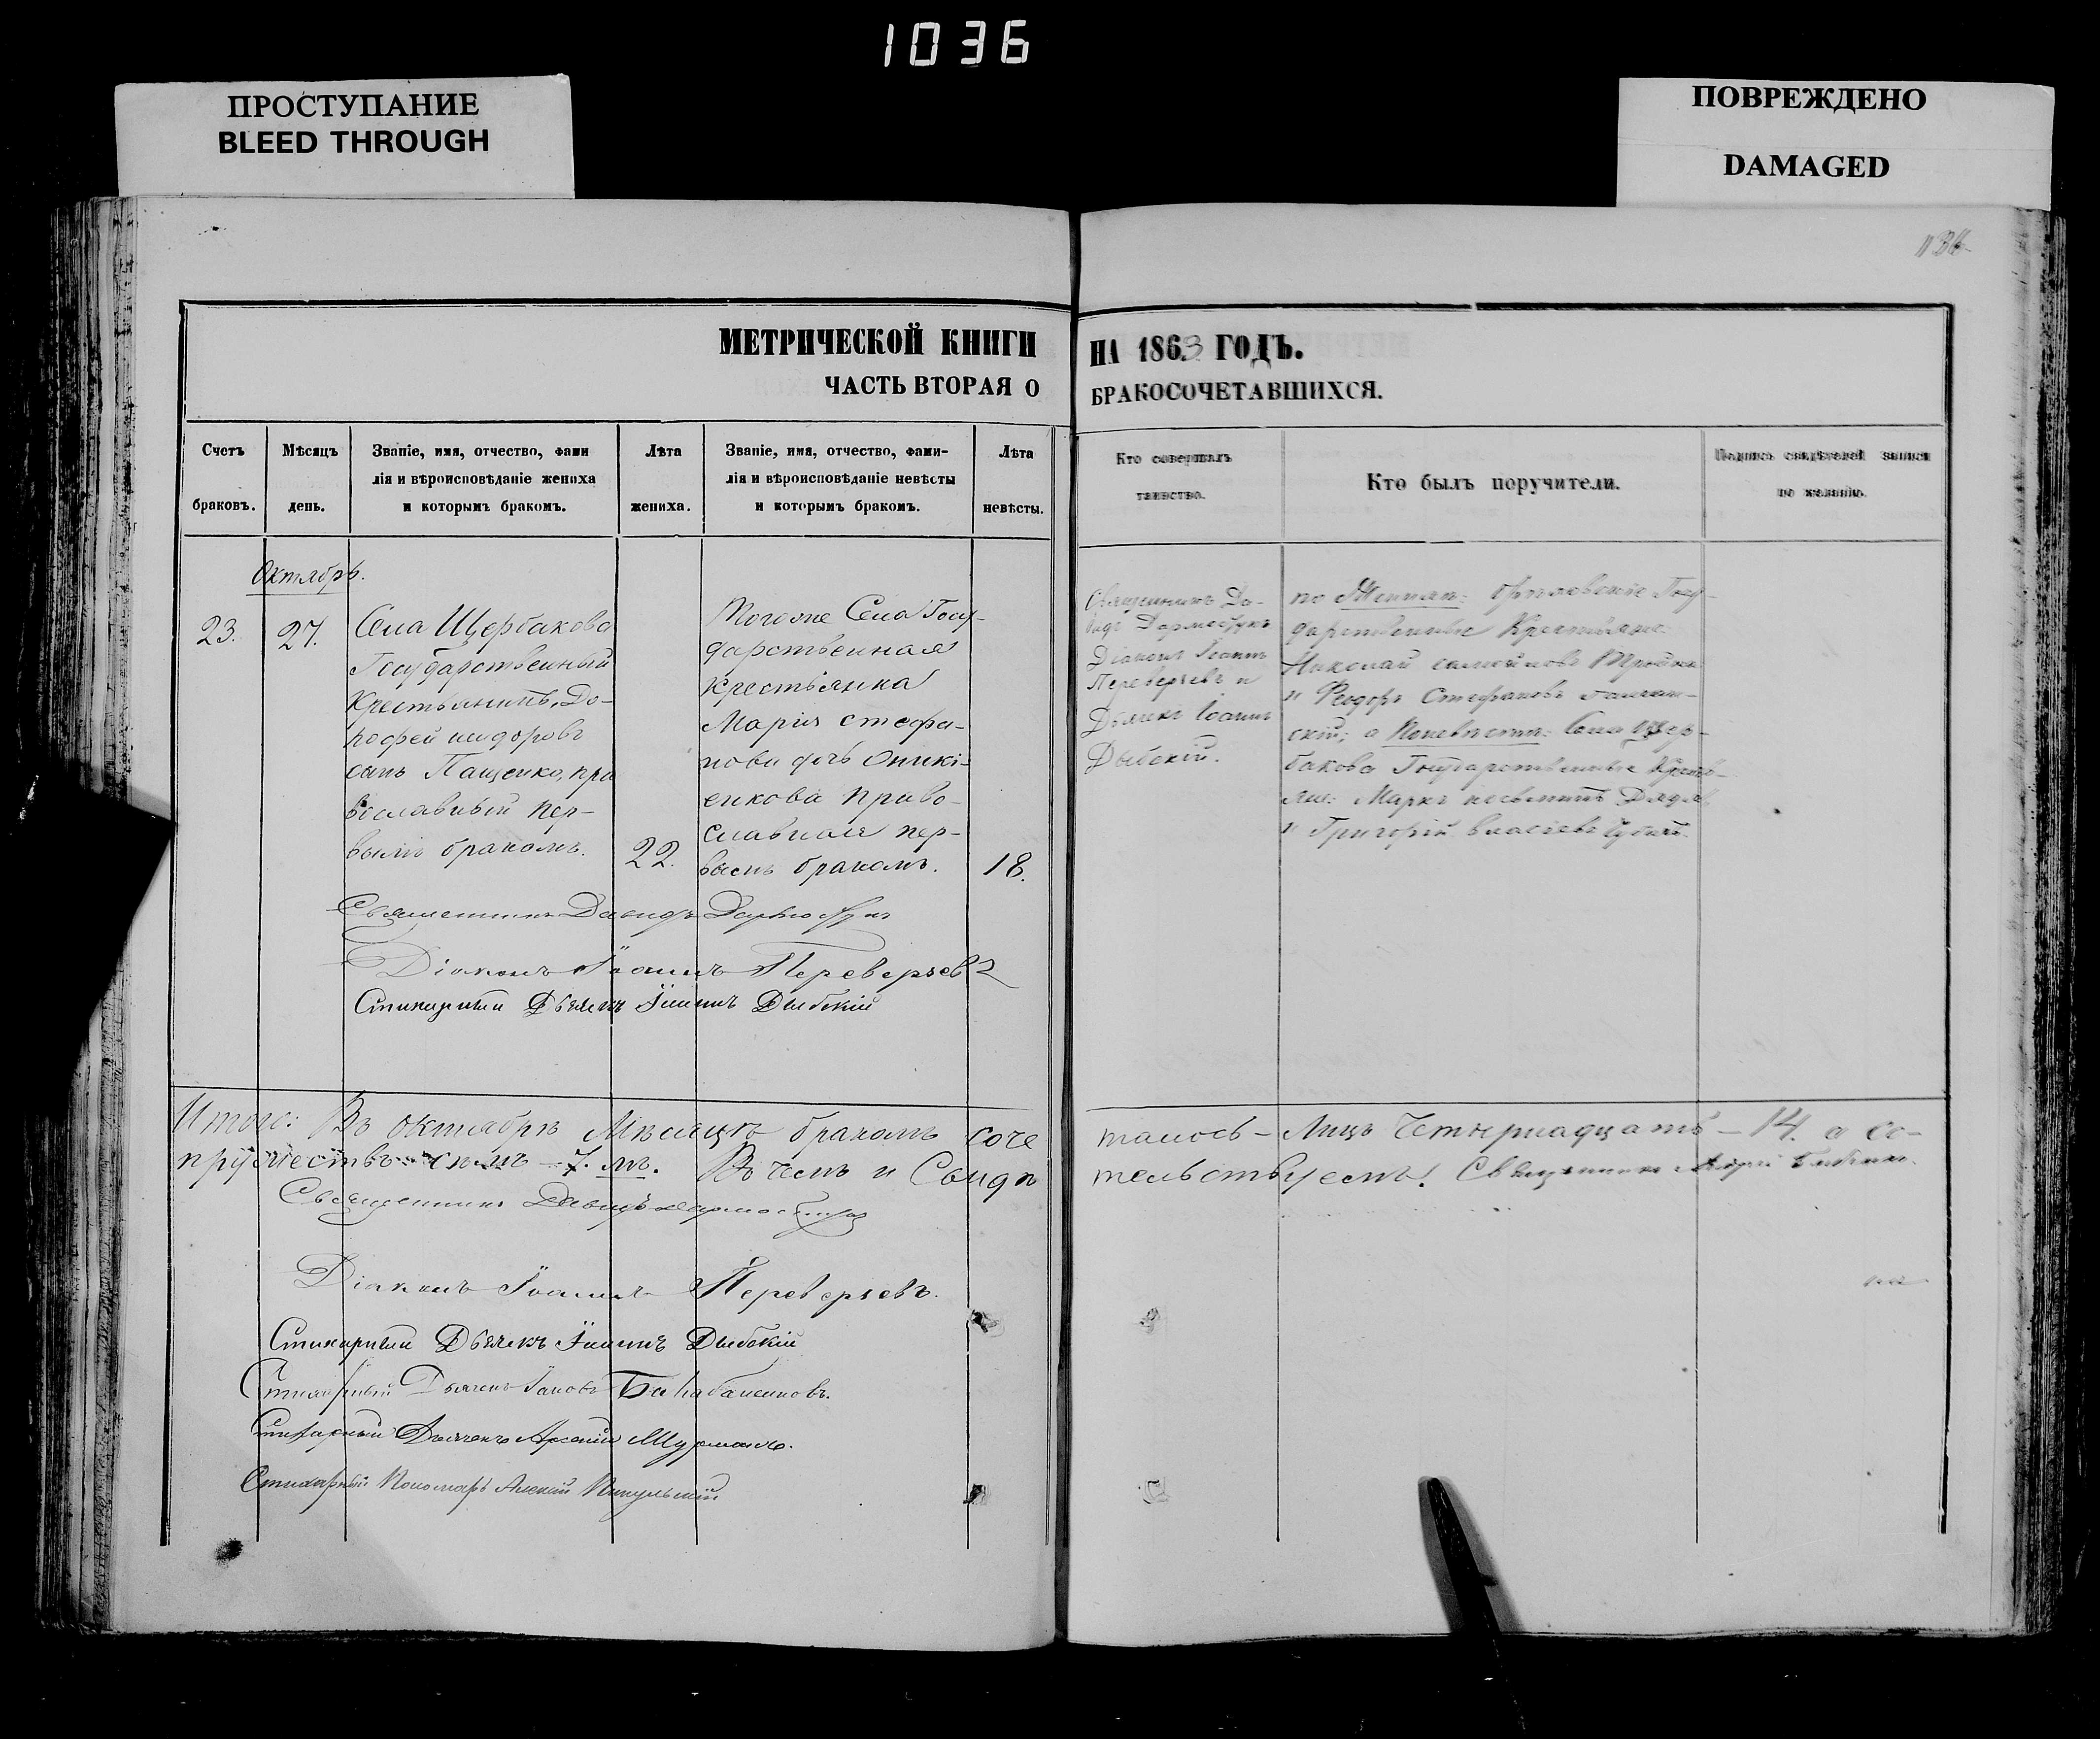 1036
ПРОСТУПАНИЕ
BLEED THROUGH
ПОВРЕЖДЕНО
DAMAGED
МЕТРИЧЕСКОЙ КНИГИ
ЧАСТЬ ВТОРАЯ О
НА 1863 ГОДЪ.
БРАКОСОЧЕТАВШИХСЯ.
Счетъ
браковъ.
Мѣсяцъ
день.
Званіе, имя, отчество, фами
лія и вѣроисповѣданіе жениха
и которымъ бракомъ.
Лѣта
жениха.
Званіе, имя, отчество, фами-
лія и вѣроисповѣданіе невѣсты
и которымъ бракомъ.
Лѣта
невѣсты.
Кто совершалъ
таинство.
Кто былъ поручители.
Подпись свидѣтелей записи
по желанію.
Октябрь.
23.
27.
Села Щербакова
Государственный
Крестьянинъ, До-
рофей сидоровъ
сынъ Пащенко, пра
вославный пер-
вымъ бракомъ.
22.
Тогоже Села Госу-
дарственная
крестьянка
Марія стефа-
нова дочь Оникі-
енкова право-
славная пер-
вымъ бракомъ.
18.
Священникъ Да-
видъ
Діаконъ Іоаннъ
Переверзевъ и
Дьячекъ Іоаннъ
Дыбскій.
по Женихѣ: Госу-
дарственные Крестьяне
Николай самойловъ
и Феодоръ Стефановъ
скій; а Поневѣстѣ: Села Щер-
бакова Государственные Кресть-
яне: Марко
и Григорій власіевъ Губарь.
Священникъ Давидъ
Діаконъ Іоаннъ Переверзевъ
Стихарный Дьячекъ Іоаннъ Дыбскій
Итого: Въ октябрѣ Мѣсяцѣ бракомъ соче
талось – Лицъ Четырнадцать – 14. а су-
пружествъ семь – 7. мъ. Въ чемъ и Свидѣ
тельствуемъ! Священникъ
Священникъ Давидъ
Діаконъ Іоаннъ Переверзевъ.
Стихарный Дьячекъ Іоаннъ Дыбскій
Стихарный Дьячекъ Іаковъ Балабаненковъ.
Стихарный Дьячекъ Арсеній
Стихарный Пономарь Алексій Пикульскій